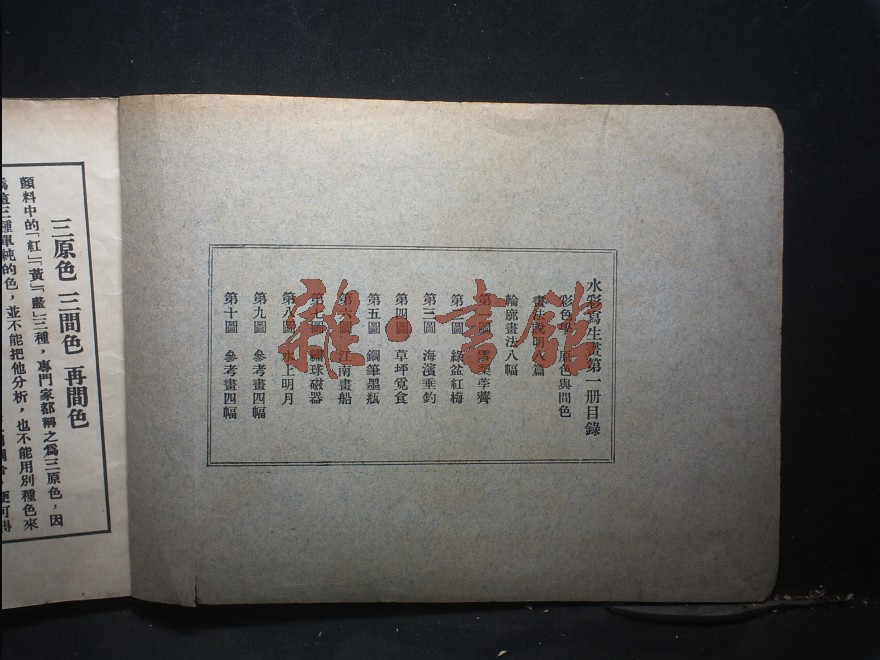 水彩寫生畫第一册目錄
彩色學 原色與間色
畫法說明八篇
輪廓畫法八幅
第一圖 雪梨荸薺
第二圖 綠盆紅梅
第三圖 海濱垂釣
第四圖 草坪覓食
第五圖 鋼筆墨瓶
第六圖 江南畫船
第七圖 繡球磁器
第八圖 水上明月
第九圖 參考畫四幅
第十圖 參考畫四幅
雜·書館
三原色 三間色 再間色
顏料中的「紅」「黃」「藍」三種，專門家都稱之爲三原色，因
爲這三種單純的色，並不能把他分析，也不能用別種色來